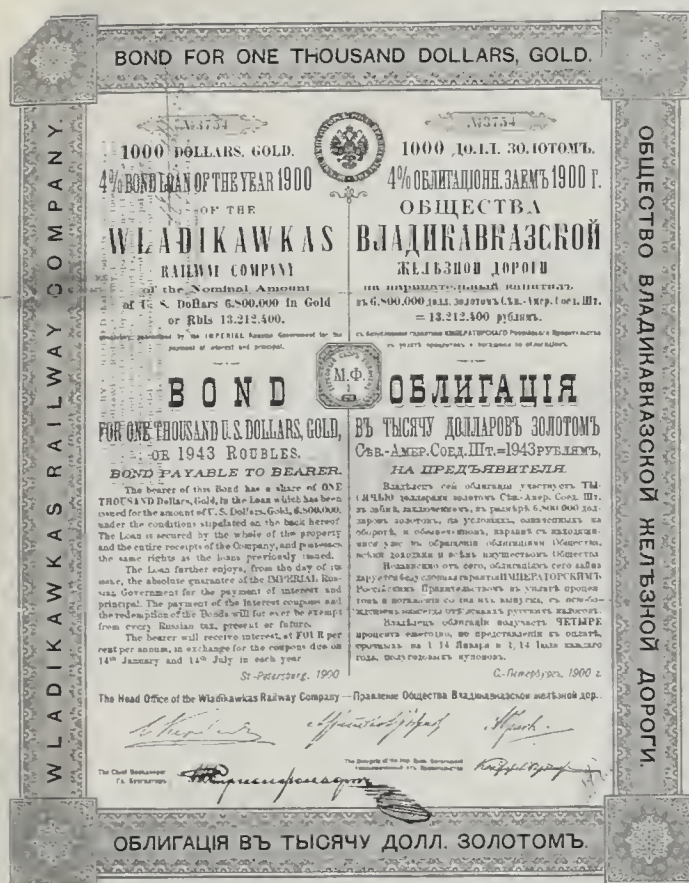 BOND FOR ONE THOUSAND DOLLARS, GOLD.
WLADIKAWKAS RAILWAY COMPANY.
№3754
1000 DOLLARS. GOLD.
4% BOND LOAN OF THE YEAR 1900
OF THE
WLADIKAWKAS
RAILWAY COMPANY
of the Nominal Amount
of U. S. Dollars 6.800.000 in Gold
or Rbls 13.212.400.
guaranteed by the IMPERIAL Russian Government for the
payment of interest and principal.
BOND
FOR ONE THOUSAND U.S. DOLLARS, GOLD,
OR 1943 ROUBLES.
BOND PAYABLE TO BEARER.
The bearer of this Bond has a share of ONE
THOUSAND Dollars, Gold, in the Loan which has been
issued for the amount of U. S. Dollars, Gold, 6.800.000,
under the conditions stipulated on the back hereof
The Loan is secured by the whole of the property
and the entire receipts of the Company, and possesses
the same rights as the loans previously issued.
The Loan further enjoys, from the day of its
issue, the absolute guarantee of the IMPERIAL Rus-
sian Government for the payment of interest and
principal. The payment of the interest coupons and
the redemption of the Bonds will for ever be exempt
from every Russian tax, present or future.
The bearer will receive interest, at FOUR per
cent per annum, in exchange for the coupons due on
14th January and 14th July in each year
St-Petersburg, 1900
М.Ф.
№3754
1000 ДОЛЛ. ЗОЛОТОМЪ.
4% ОБЛИГАЦІОНН. ЗАЕМЪ 1900 г.
ОБЩЕСТВА
ВЛАДИКАВКАЗСКОЙ
ЖЕЛѢЗНОЙ ДОРОГИ
на нарицательный капиталъ
въ 6.800.000 долл. золотомъ Сѣв.-Амер. Соед. Шт.
= 13.212.400 рублямъ.
ОБЛИГАЦІЯ
ВЪ ТЫСЯЧУ ДОЛЛАРОВЪ ЗОЛОТОМЪ
СѢВ.-АМЕР. СОЕД. ШТ.=1943 РУБЛЯМЪ,
НА ПРЕДЪЯВИТЕЛЯ.
Владѣлецъ сей облигаціи участвуетъ ТЫ-
СЯЧЬЮ долларами золотомъ Сѣв.-Амер. Соед. Шт.
въ займѣ, заключенномъ, въ размѣрѣ 6.800.000 дол-
ларовъ золотомъ, на условіяхъ, означенныхъ на
оборотѣ, и обезпеченномъ, наравнѣ съ находящи-
мися уже въ обращеніи облигаціями Общества,
всѣми доходами и всѣмъ имуществомъ Общества
Независимо отъ сего, облигаціямъ сего займа
Владѣлецъ облигаціи получаетъ ЧЕТЫРЕ
процента ежегодно, по представленіи къ оплатѣ,
срочныхъ на 1/14 Января и 1/14 Іюля каждаго
года, полугодовыхъ купоновъ.
С.-Петербургъ, 1900 г.
The Head Office of the Wladikawkas Railway Company — Правленіе Общества Владикавказской желѣзной дор.
The Chief Bookkeeper
Гл. Бухгалтеръ
ОБЩЕСТВО ВЛАДИКАВКАЗСКОЙ ЖЕЛѢЗНОЙ ДОРОГИ.
ОБЛИГАЦІЯ ВЪ ТЫСЯЧУ ДОЛЛ. ЗОЛОТОМЪ.